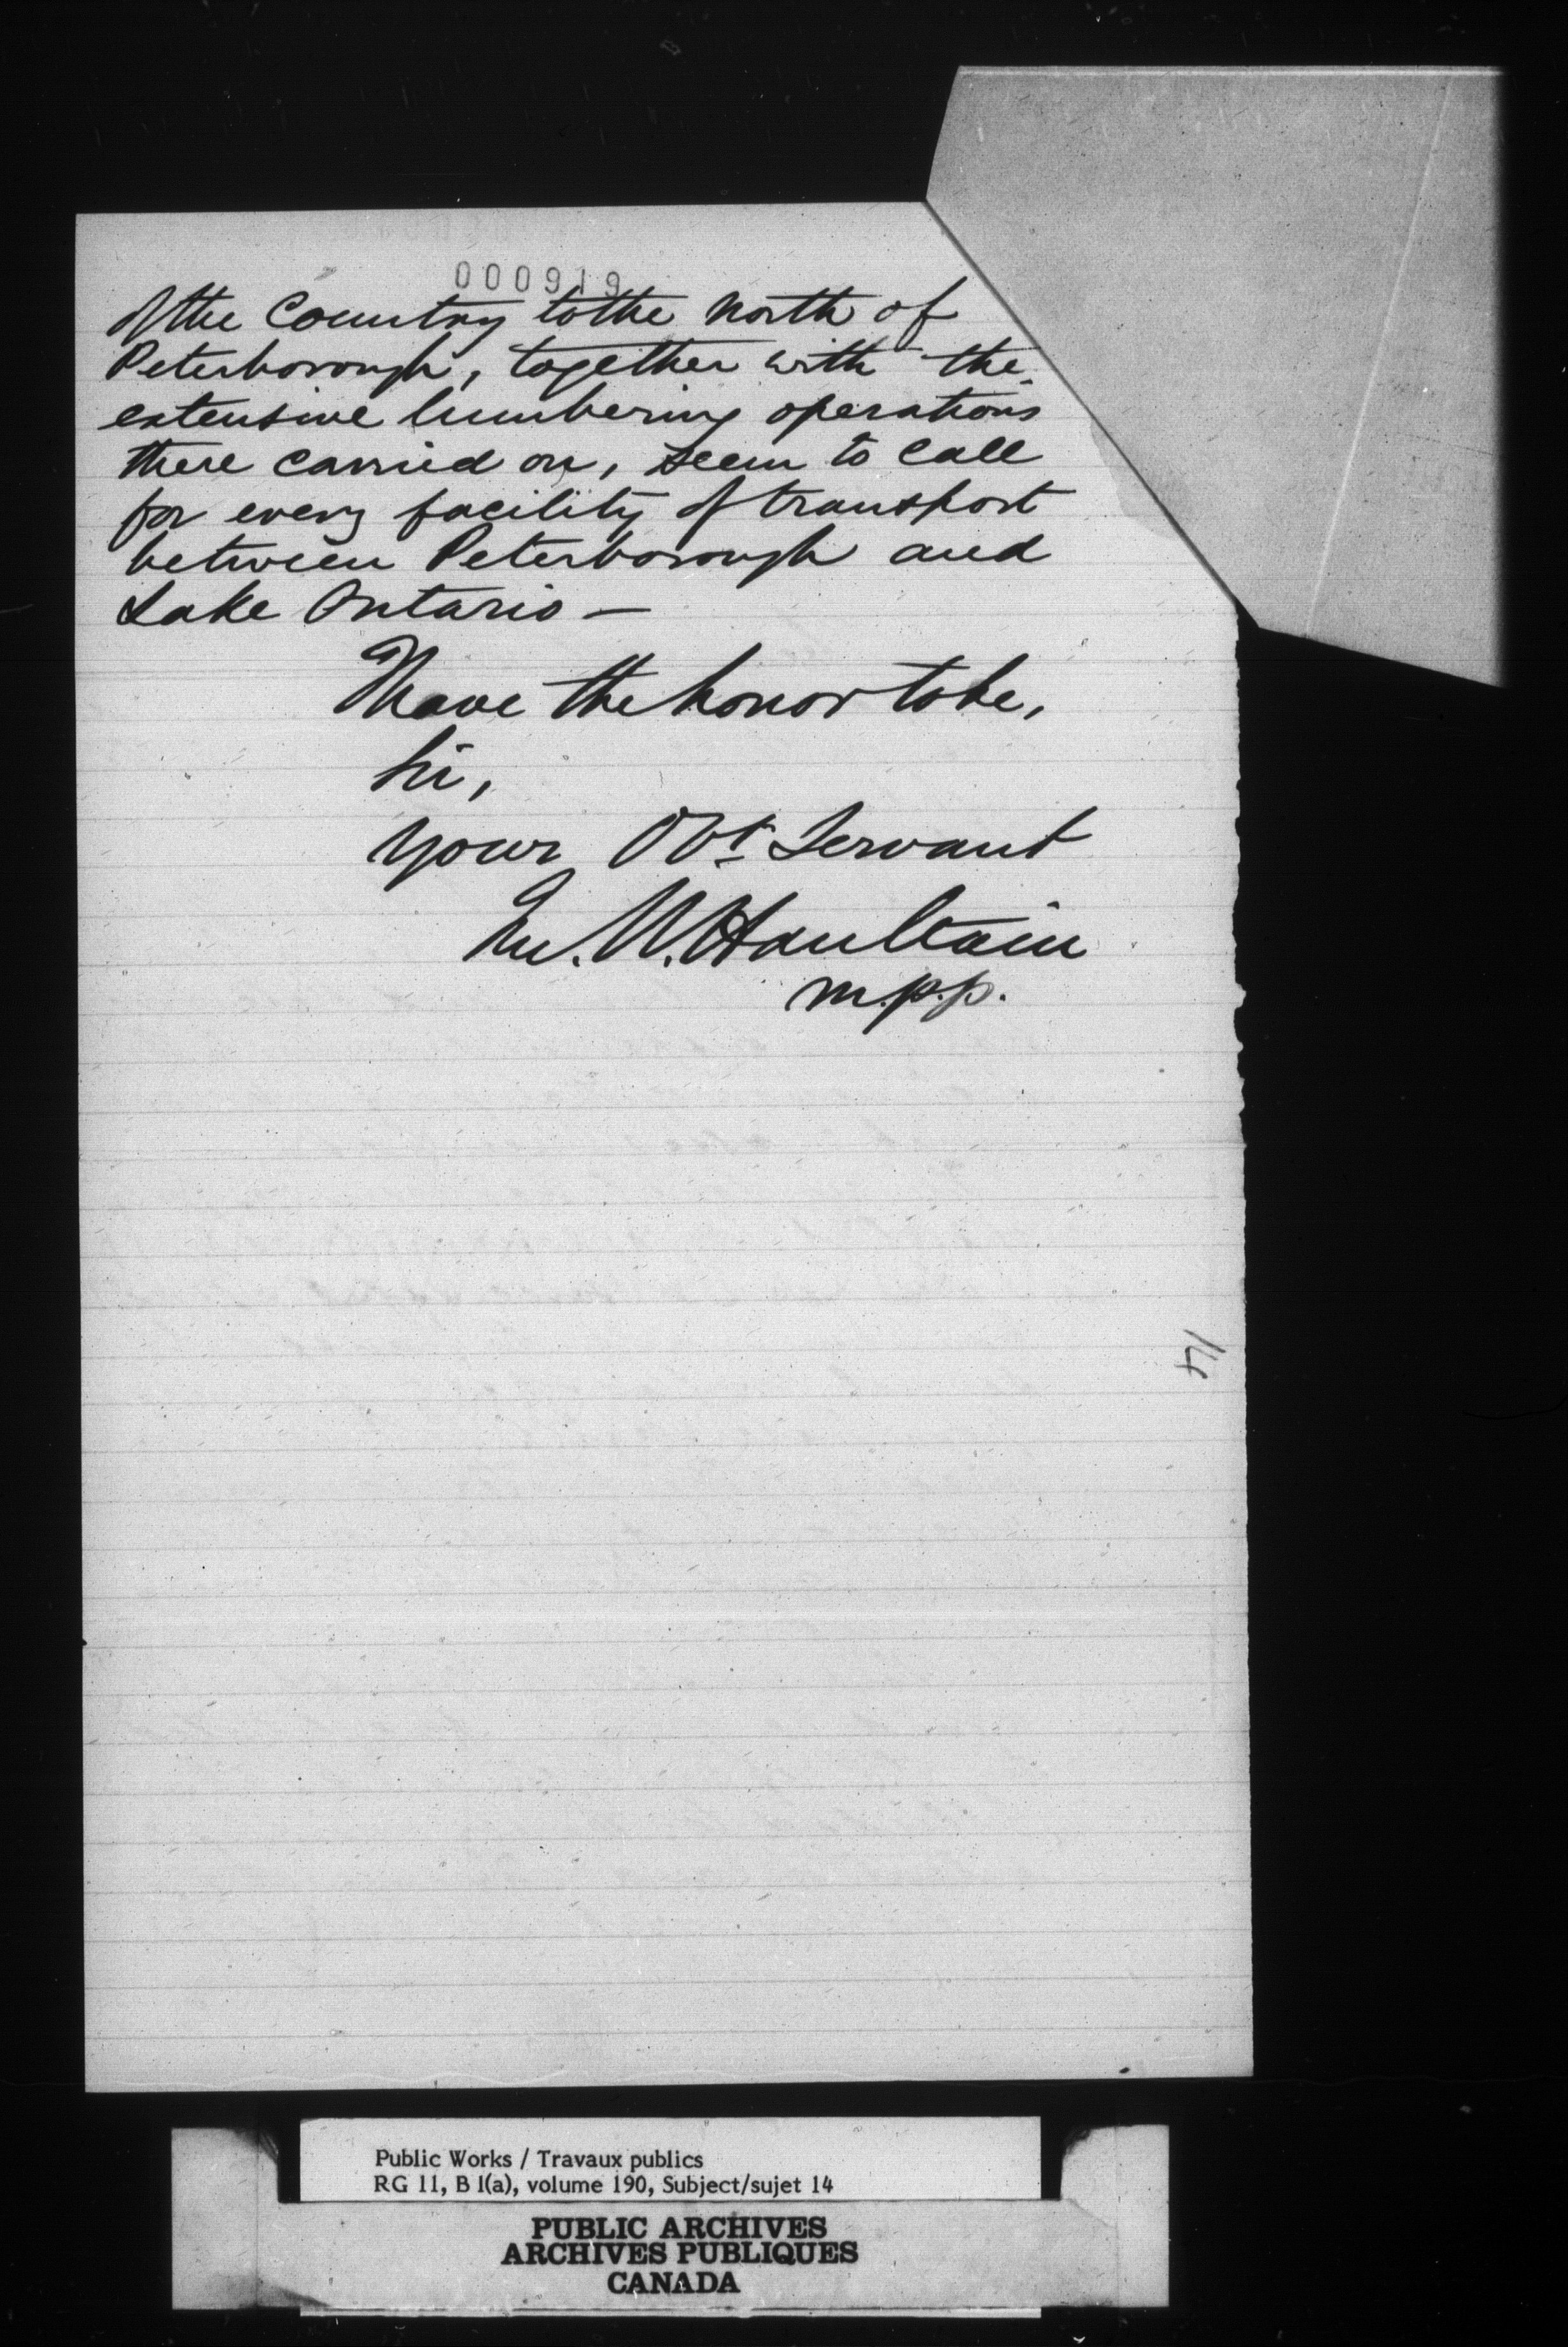 000919
of the Country to the north of
Peterborough, together with the
extensive lumbering operations
there carried on, seem to call
for every facility of transport
between Peterborough and
Lake Ontario —
I have the honor to be,
Sir,
Your Obt Servant
W. Haultain
m.p.p.
14
Public Works / Travaux publics
RG 11, B 1(a), volume 190, Subject/sujet 14
PUBLIC ARCHIVES
ARCHIVES PUBLIQUES
CANADA